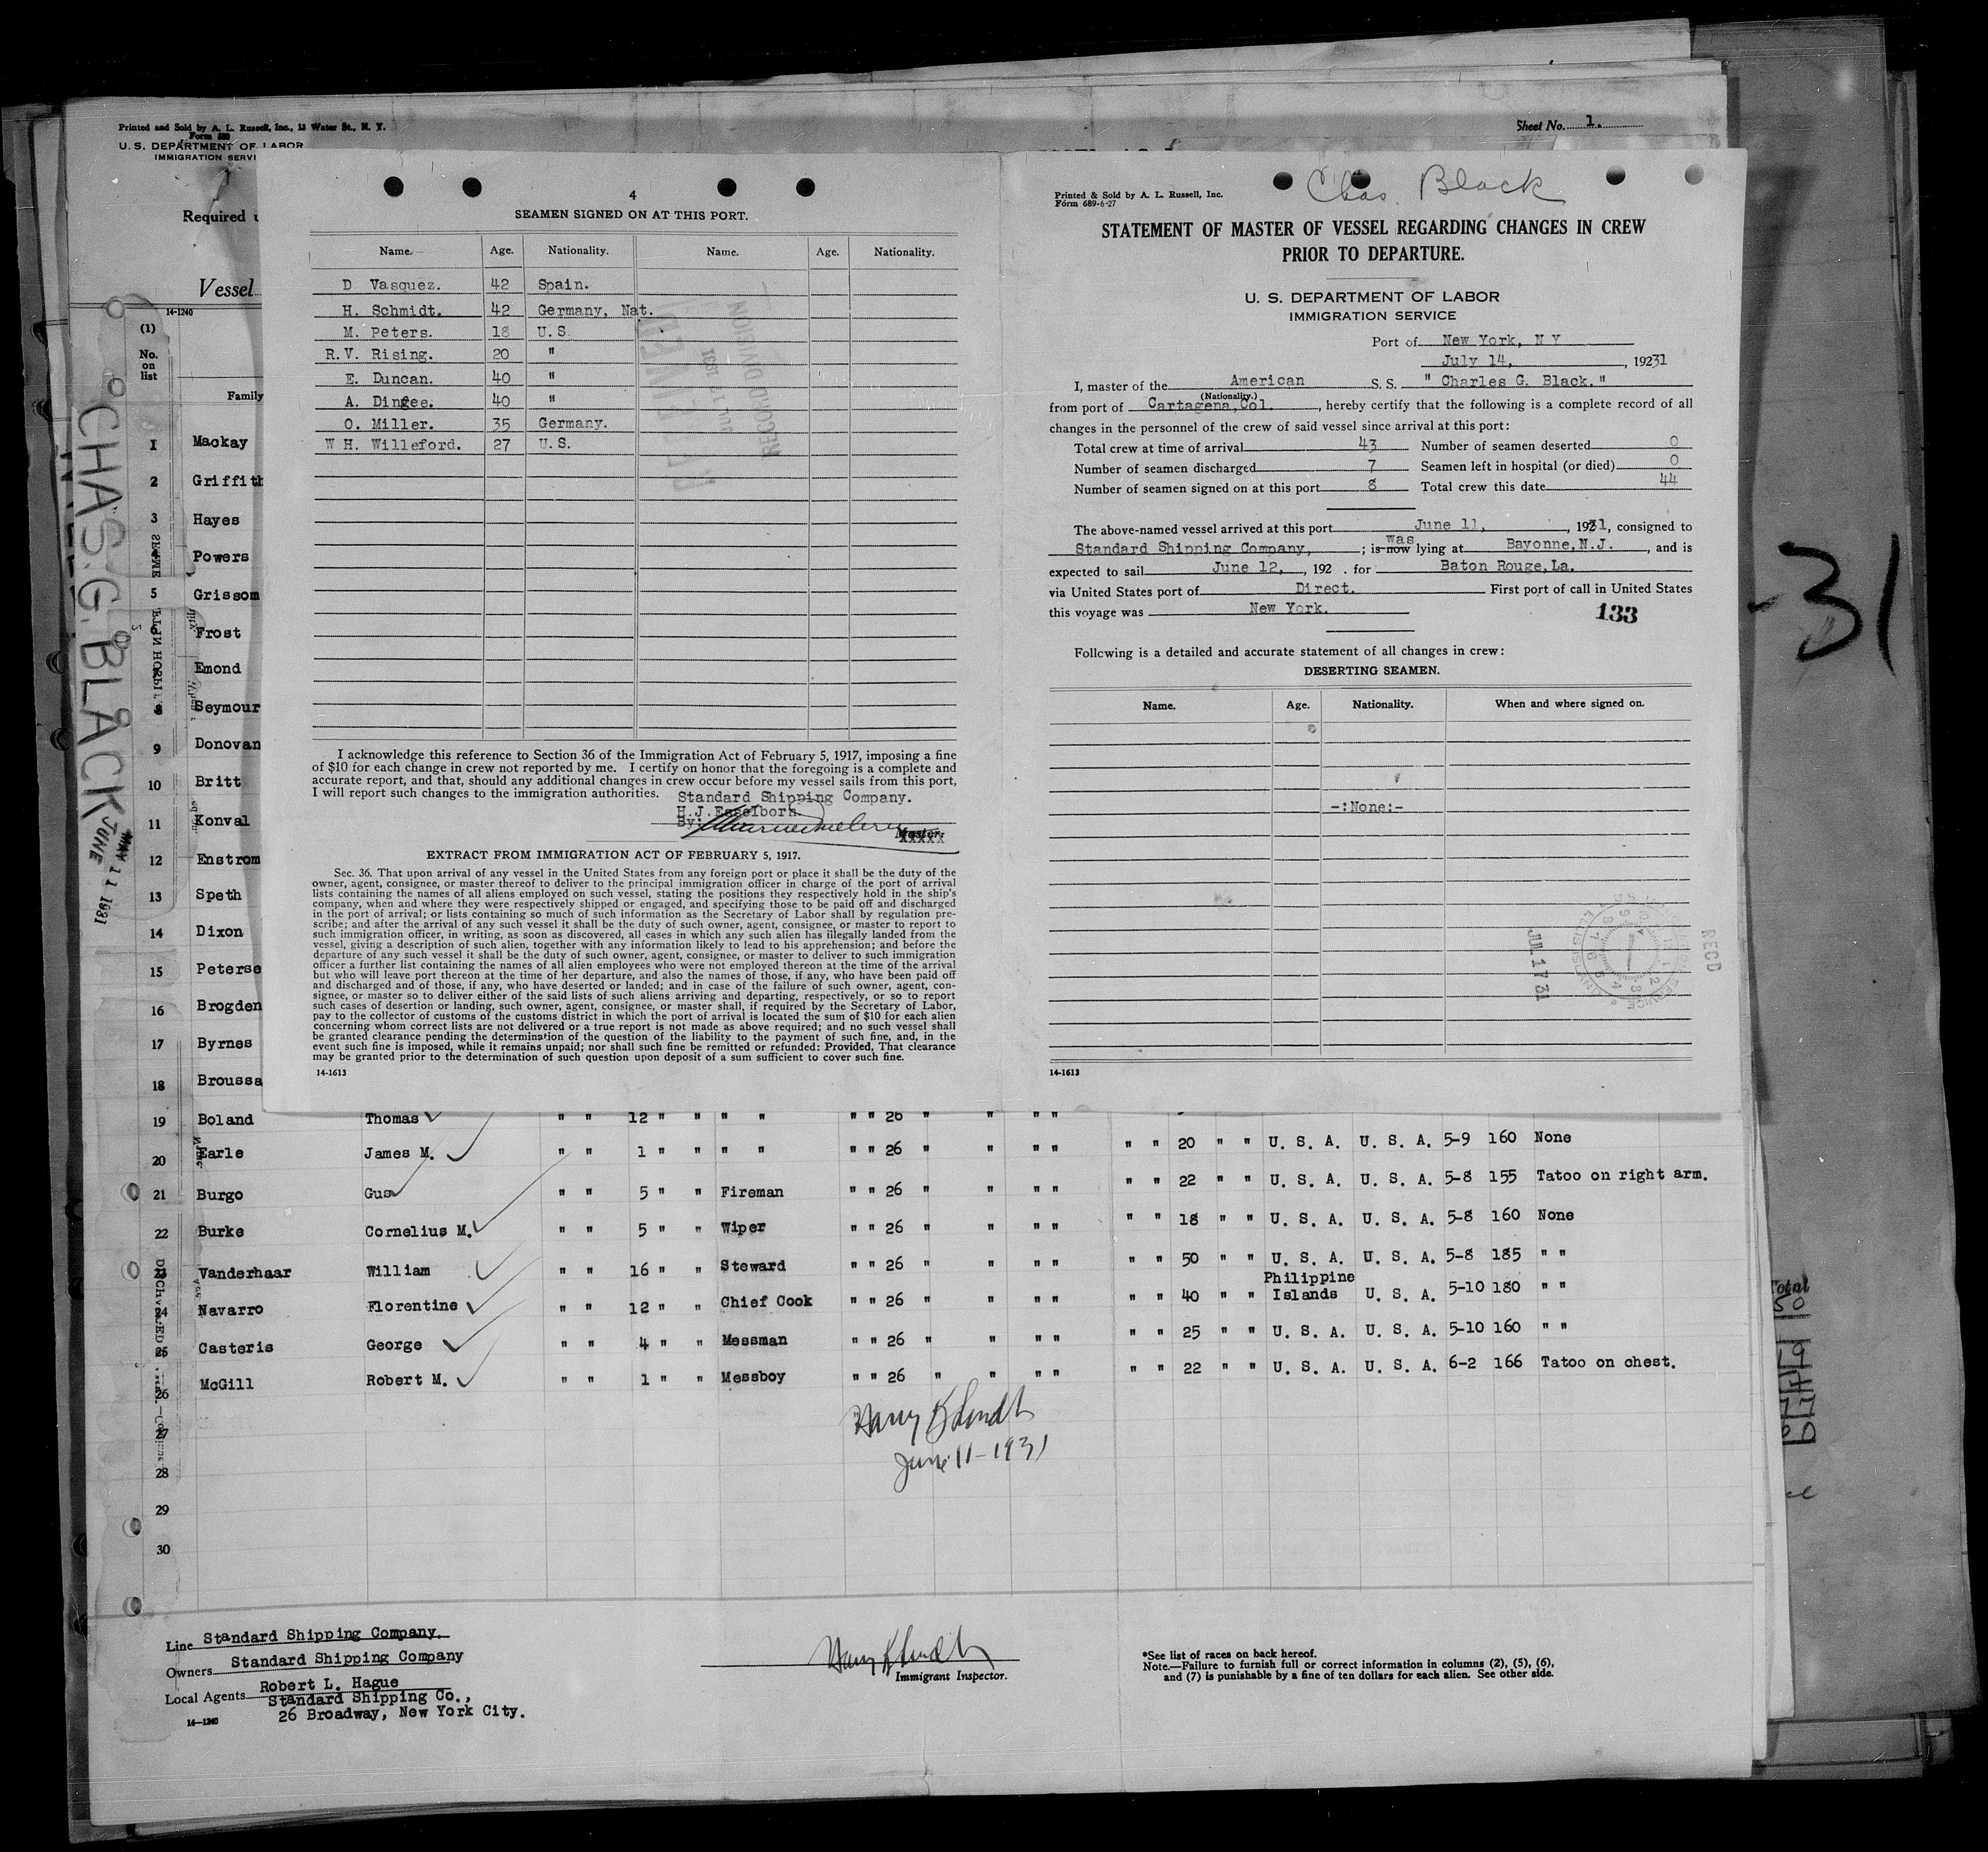 Printed and Sold by A. L. Russell, Inc., 13 Water St., N. Y.
Form 680
U. S. DEPARTMENT OF LABOR
IMMIGRATION SERVI
Sheet No. 1.
Required
Vessel
14-1240
(1)
No.
on
list
Family
CHAS. G. BLACK
JUNE 11 1931
1 Mackay
2 Griffith
3 Hayes
4 Powers
5 Grissom
6 Frost
7 Emond
8 Seymour
9 Donovan
10 Britt
11 Konval
12 Enstrom
13 Speth
14 Dixon
15 Peterse
16 Brogden
17 Byrnes
18 Broussa
4
SEAMEN SIGNED ON AT THIS PORT.
Name. Age. Nationality. Name. Age. Nationality.
D Vasquez. 42 Spain.
H. Schmidt. 42 Germany, Nat.
M. Peters. 18 U.S.
R.V. Rising. 20 "
E. Duncan. 40 "
A. Dingee. 40 "
O. Miller. 35 Germany.
W H. Willeford. 27 U.S.
RECORD DIVISION
I acknowledge this reference to Section 36 of the Immigration Act of February 5, 1917, imposing a fine
of $10 for each change in crew not reported by me. I certify on honor that the foregoing is a complete and
accurate report, and that, should any additional changes in crew occur before my vessel sails from this port,
I will report such changes to the immigration authorities.
Standard Shipping Company.
H.J. Esselborn.
By:
Master.
EXTRACT FROM IMMIGRATION ACT OF FEBRUARY 5, 1917.
Sec. 36. That upon arrival of any vessel in the United States from any foreign port or place it shall be the duty of the
owner, agent, consignee, or master thereof to deliver to the principal immigration officer in charge of the port of arrival
lists containing the names of all aliens employed on such vessel, stating the positions they respectively hold in the ship's
company, when and where they were respectively shipped or engaged, and specifying those to be paid off and discharged
in the port of arrival; or lists containing so much of such information as the Secretary of Labor shall by regulation pre-
scribe; and after the arrival of any such vessel it shall be the duty of such owner, agent, consignee, or master to report to
such immigration officer, in writing, as soon as discovered, all cases in which any such alien has illegally landed from the
vessel, giving a description of such alien, together with any information likely to lead to his apprehension; and before the
departure of any such vessel it shall be the duty of such owner, agent, consignee, or master to deliver to such immigration
officer a further list containing the names of all alien employees who were not employed thereon at the time of the arrival
but who will leave port thereon at the time of her departure, and also the names of those, if any, who have been paid off
and discharged and of those, if any, who have deserted or landed; and in case of the failure of such owner, agent, con-
signee, or master so to deliver either of the said lists of such aliens arriving and departing, respectively, or so to report
such cases of desertion or landing, such owner, agent, consignee, or master shall, if required by the Secretary of Labor,
pay to the collector of customs of the customs district in which the port of arrival is located the sum of $10 for each alien
concerning whom correct lists are not delivered or a true report is not made as above required; and no such vessel shall
be granted clearance pending the determination of the question of the liability to the payment of such fine, and, in the
event such fine is imposed, while it remains unpaid; nor shall such fine be remitted or refunded: Provided, That clearance
may be granted prior to the determination of such question upon deposit of a sum sufficient to cover such fine.
14-1613
Chas. Black
Printed & Sold by A. L. Russell, Inc.
Form 689-6-27
STATEMENT OF MASTER OF VESSEL REGARDING CHANGES IN CREW
PRIOR TO DEPARTURE.
U. S. DEPARTMENT OF LABOR
IMMIGRATION SERVICE
Port of New York, N Y
July 14, , 19231
I, master of the American S. S. " Charles G. Black."
(Nationality.)
from port of Cartagena, Col. , hereby certify that the following is a complete record of all
changes in the personnel of the crew of said vessel since arrival at this port:
Total crew at time of arrival 43 Number of seamen deserted 0
Number of seamen discharged 7 Seamen left in hospital (or died) 0
Number of seamen signed on at this port 8 Total crew this date 44
The above-named vessel arrived at this port June 11, , 1931, consigned to
Standard Shipping Company, ; is now was lying at Bayonne, N.J. , and is
expected to sail June 12, , 192 . for Baton Rouge, La.
via United States port of Direct. First port of call in United States
this voyage was New York.
133
Following is a detailed and accurate statement of all changes in crew:
DESERTING SEAMEN.
Name. Age. Nationality. When and where signed on.
-:None:-
RECD
JUL 17 31
14-1613
-31
Total
19 Boland Thomas " " 12 " " " " " " 26 " " " "
20 Earle James M. " " 1 " " " " " " 26 " " " " " " 20 " " U. S. A. U. S. A. 5-9 160 None
21 Burgo Gus " " 5 " " Fireman " " 26 " " " " " " 22 " " U. S. A. U. S. A. 5-8 155 Tatoo on right arm.
22 Burke Cornelius M. " " 5 " " Wiper " " 26 " " " " " " 18 " " U. S. A. U. S. A. 5-8 160 None
23 Vanderhaar William " " 16 " " Steward " " 26 " " " " " " 50 " " U. S. A. U. S. A. 5-8 185 " "
24 Navarro Florentine " " 12 " " Chief Cook " " 26 " " " " " " 40 " " Philippine Islands U. S. A. 5-10 180 " "
25 Casteris George " " 4 " " Messman " " 26 " " " " " " 25 " " U. S. A. U. S. A. 5-10 160 " "
26 McGill Robert M. " " 1 " " Messboy " " 26 " " " " " " 22 " " U. S. A. U. S. A. 6-2 166 Tatoo on chest.
27
28
29
30
June 11-1931
Line Standard Shipping Company.
Owners Standard Shipping Company
Local Agents Robert L. Hague
Standard Shipping Co.,
26 Broadway, New York City.
14-1240
Immigrant Inspector.
*See list of races on back hereof.
Note.—Failure to furnish full or correct information in columns (2), (5), (6),
and (7) is punishable by a fine of ten dollars for each alien. See other side.